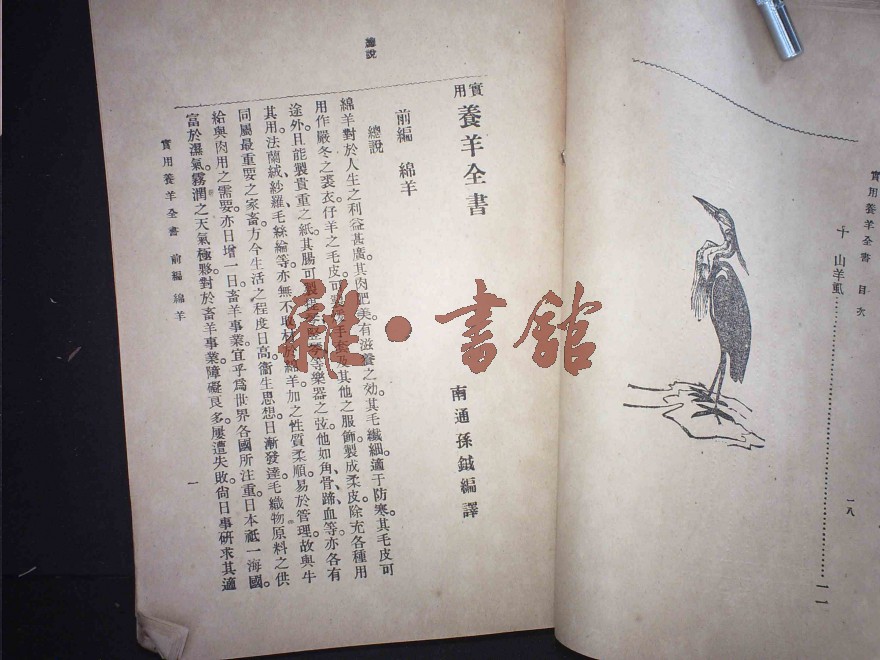 實用養羊全書 目次
千 山羊虱……………………一一
一八
總說
實用養羊全書
南通孫鉞編譯
前編 綿羊
總說
綿羊對於人生之利益甚廣。其肉肥美有滋養之效。其毛纖細。適于防寒。其毛皮可
用作嚴冬之裘衣。仔羊之毛皮。可 手套及其他之服飾。製成柔皮。除充各種用
途外。且能製貴重之紙。其腸可製 等樂器之弦。他如角、骨、蹄、血等。亦各有
其用。法蘭絨、紗羅、毛絲綸等。亦無不取材於綿羊。加之性質柔順。易於管理。故與牛
同屬最重要之家畜。方今生活之程度日高。衞生思想日漸發達。毛織物原料之供
給與肉用之需要。亦日增一日。畜羊事業。宜乎爲世界各國所注重。日本祇一海國。
富於濕氣。霧潤之天氣極夥。對於畜羊事業。障礙良多。屢遭失敗。尙日事研求其適
實用養羊全書 前編 綿羊
一
雜·書館